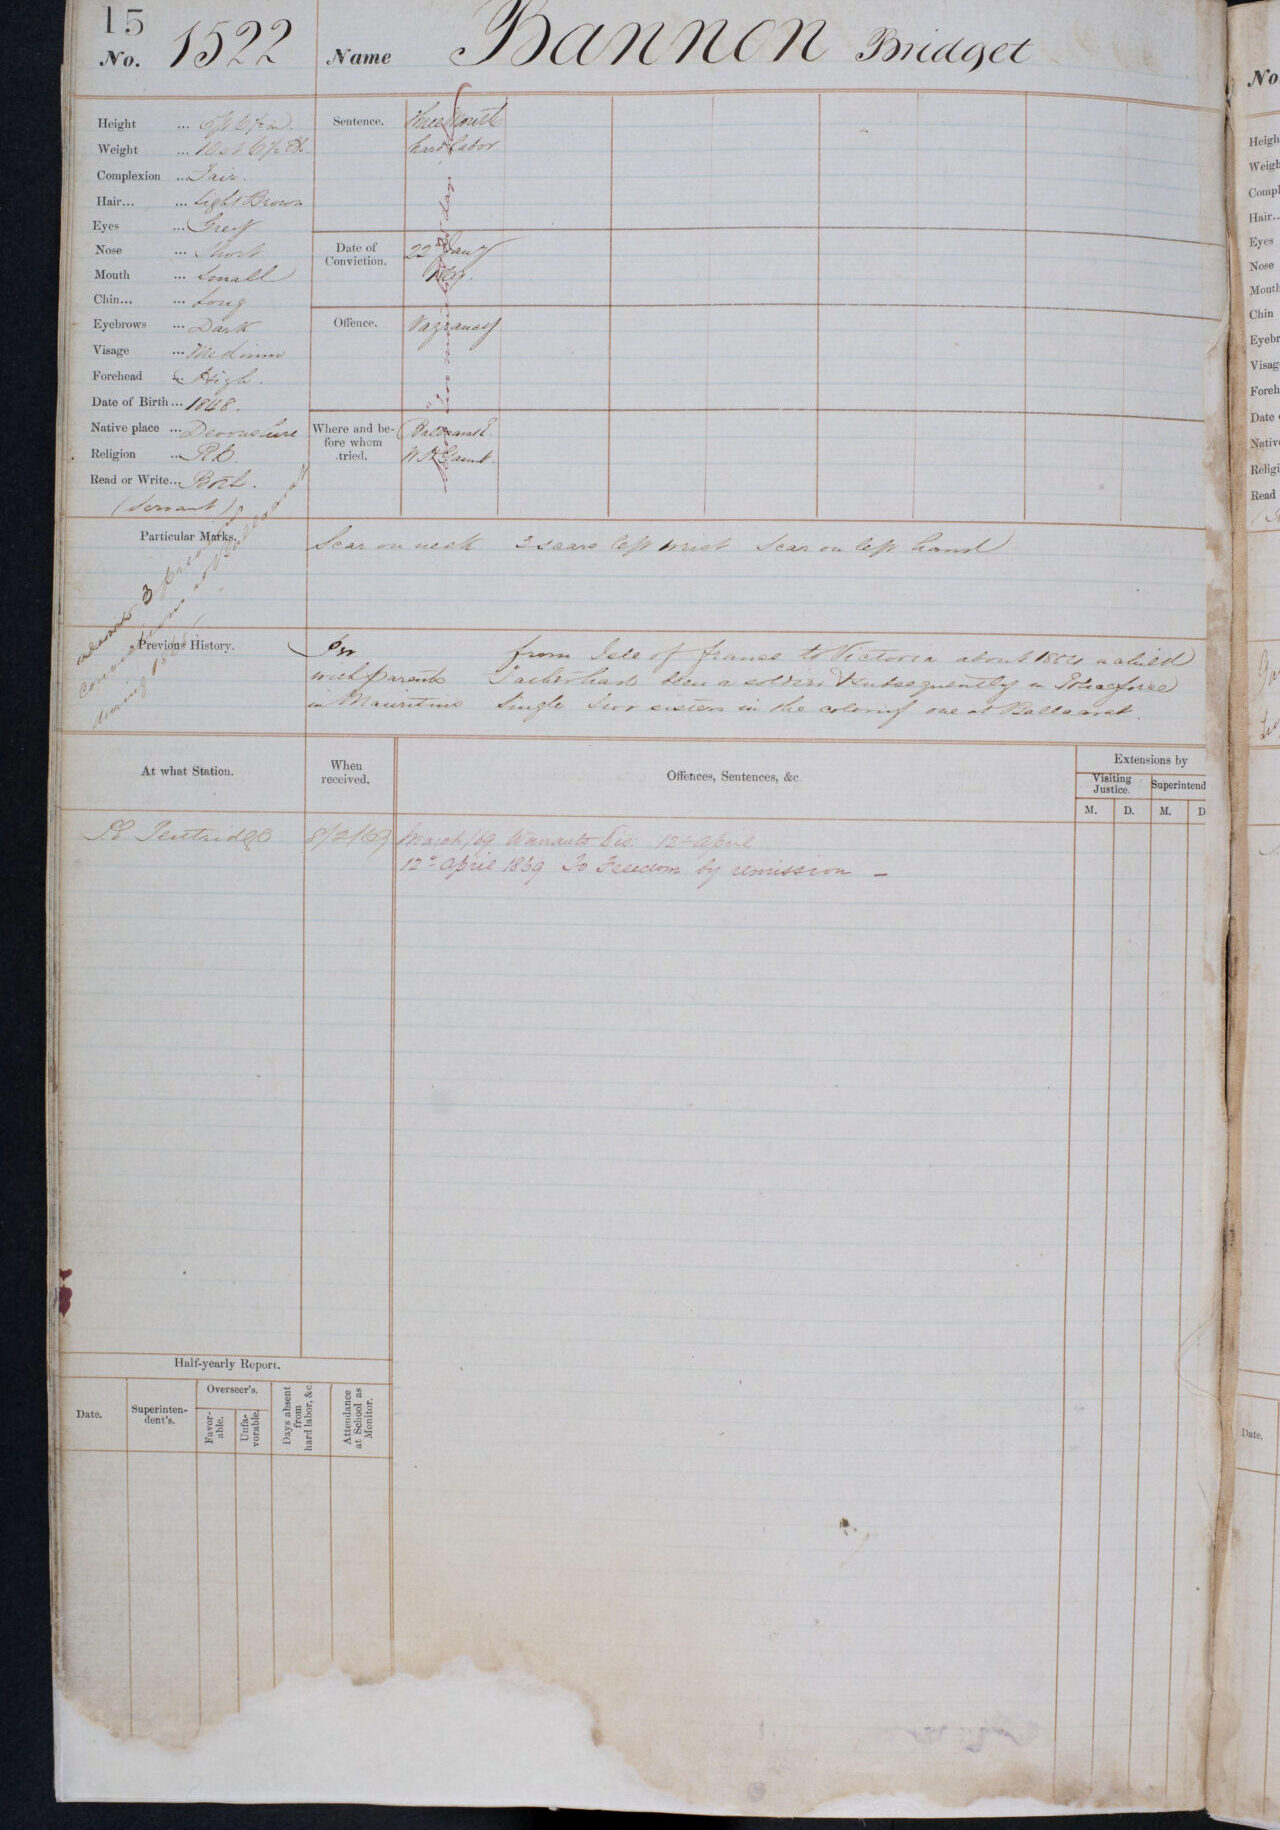 15
No. 1522 Name Bannon Bridget
Height ... 5ft 6½in.
Weight ... 10st 6½ lb
Complexion ... Fair.
Hair... ... Light Brown
Eyes ... Grey
Nose ... Short
Mouth ... Small
Chin... ... Long
Eyebrows ... Dark
Visage ... Medium
Forehead ... High.
Date of Birth ... 1848.
Native place ... Devonshire
Religion ... R.C.
Read or Write... Both.
(Servant)
Sentence. Three Month
hard labor
Date of
Conviction. 22nd Jany
1869.
Offence. Vagrancy
Where and be-
fore whom
tried. Ballaarat
Particular Marks. Scar on neck 3 scars left wrist Scar on left hand
admits 3 previous
convictions at Ballaarat
during 1868
Previous History. Per from Isle of france to Victoria about 1864 a child
with parents Father had been a soldier & subsequently in Police force
in Mauritius Single two sisters in the colony one at Ballaarat.
At what Station. When
received. Offences, Sentences, &c. Extensions by
Visiting
Justice. Superintend
M. D. M. D
Pentridge 8/2/69 March/69 Warrants Dis: 12th April
12th April 1869 To Freedom by remission —
Half-yearly Report.
Date. Superinten-
dent's. Overseer's.
Favor-
able. Unfa-
vorable. Days absent
from
hard labor, &c. Attendance
at School as
Monitor.
No
Heigh
Weigh
Compl
Hair..
Eyes
Nose
Mouth
Chin
Eyebr
Visag
Foreh
Date
Nativ
Religi
Read
Date.